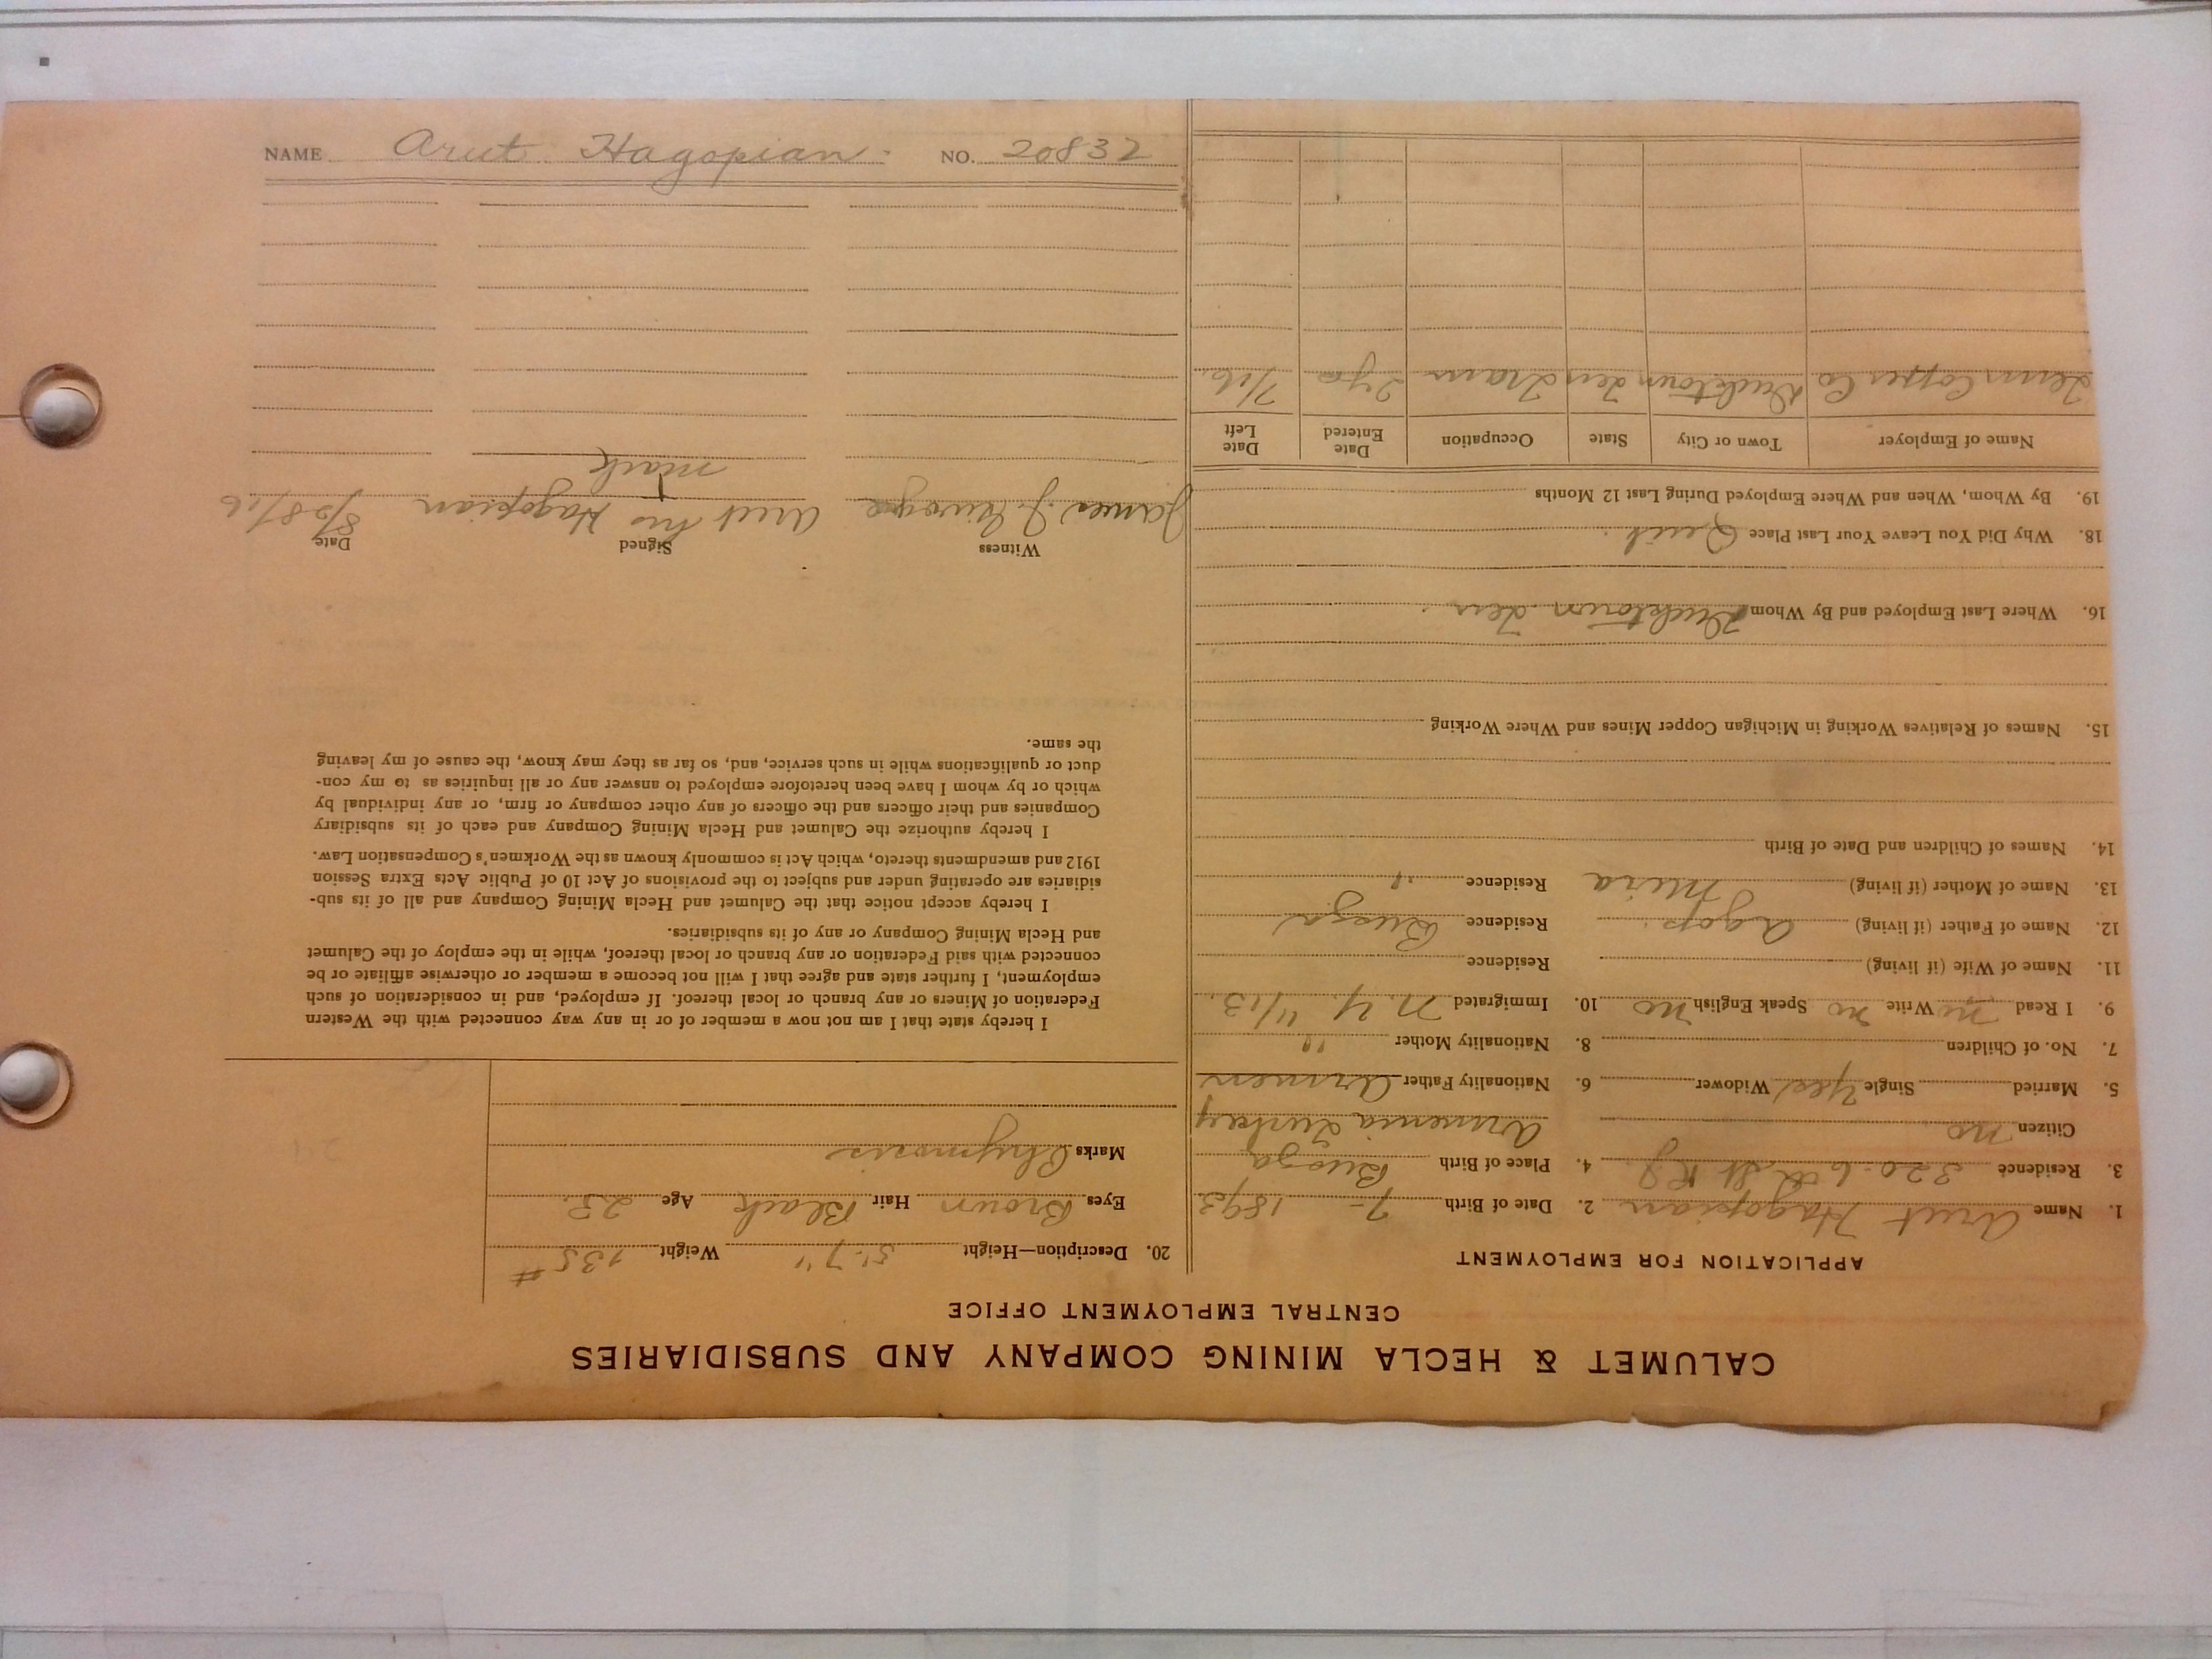 CALUMET & HECLA MINING COMPANY AND SUBSIDIARIES
CENTRAL EMPLOYMENT OFFICE
APPLICATION FOR EMPLOYMENT
1. Name Arut Hagopian 2. Date of Birth 7- 1893
3. Residence 320-6th St RJ 4. Place of Birth Busga
Citizen no Armenia Turkey
5. Married Single Yes Widower 6. Nationality Father Armen
7. No. of Children 8. Nationality Mother "
9. I Read no Write no Speak English no 10. Immigrated N.Y. 11/13.
11. Name of Wife (if living) Residence
12. Name of Father (if living) Agop. Residence Busga
13. Name of Mother (if living) Residence "
14. Names of Children and Date of Birth
15. Names of Relatives Working in Michigan Copper Mines and Where Working
16. Where Last Employed and By Whom Ducktown Ten
18. Why Did You Leave Your Last Place Quit.
19. By Whom, When and Where Employed During Last 12 Months
Name of Employer Town or City State Occupation Date Entered Date Left
Tenn Copper Co Ducktown Ten Tram 2 yrs 7/16.
20. Description—Height 5'-7" Weight 135 #
Eyes Brown Hair Black Age 23.
Marks
I hereby state that I am not now a member of or in any way connected with the Western
Federation of Miners or any branch or local thereof. If employed, and in consideration of such
employment, I further state and agree that I will not become a member or otherwise affiliate or be
connected with said Federation or any branch or local thereof, while in the employ of the Calumet
and Hecla Mining Company or any of its subsidiaries.
I hereby accept notice that the Calumet and Hecla Mining Company and all of its sub-
sidiaries are operating under and subject to the provisions of Act 10 of Public Acts Extra Session
1912 and amendments thereto, which Act is commonly known as the Workmen's Compensation Law.
I hereby authorize the Calumet and Hecla Mining Company and each of its subsidiary
Companies and their officers and the officers of any other company or firm, or any individual by
which or by whom I have been heretofore employed to answer any or all inquiries as to my con-
duct or qualifications while in such service, and, so far as they may know, the cause of my leaving
the same.
Witness Signed Date
James J. Arut his Hagopian 8/28/16
mark
NAME Arut Hagopian. NO. 20832